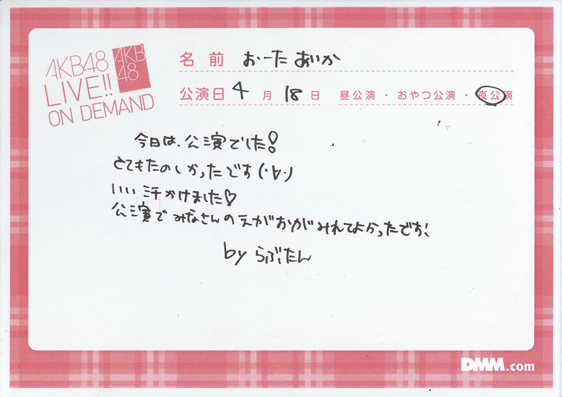 AKB48
LIVE!!
ON DEMAND
AKB
48
名前 おーた あいか
公演日 4月18日 昼公演・おやつ公演・夜公演
今日は、公演でした!
とてもたのしかったです(・∀・)
いい汗かけました♡
公演でみなさんのえがおがみれてよかったです!
by らぶたん
DMM.com